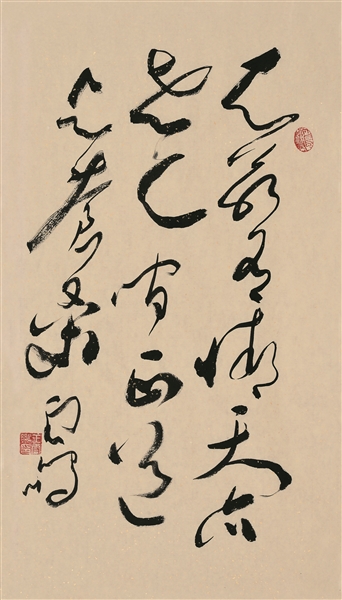 天若有情天亦
老人间正道
是沧桑